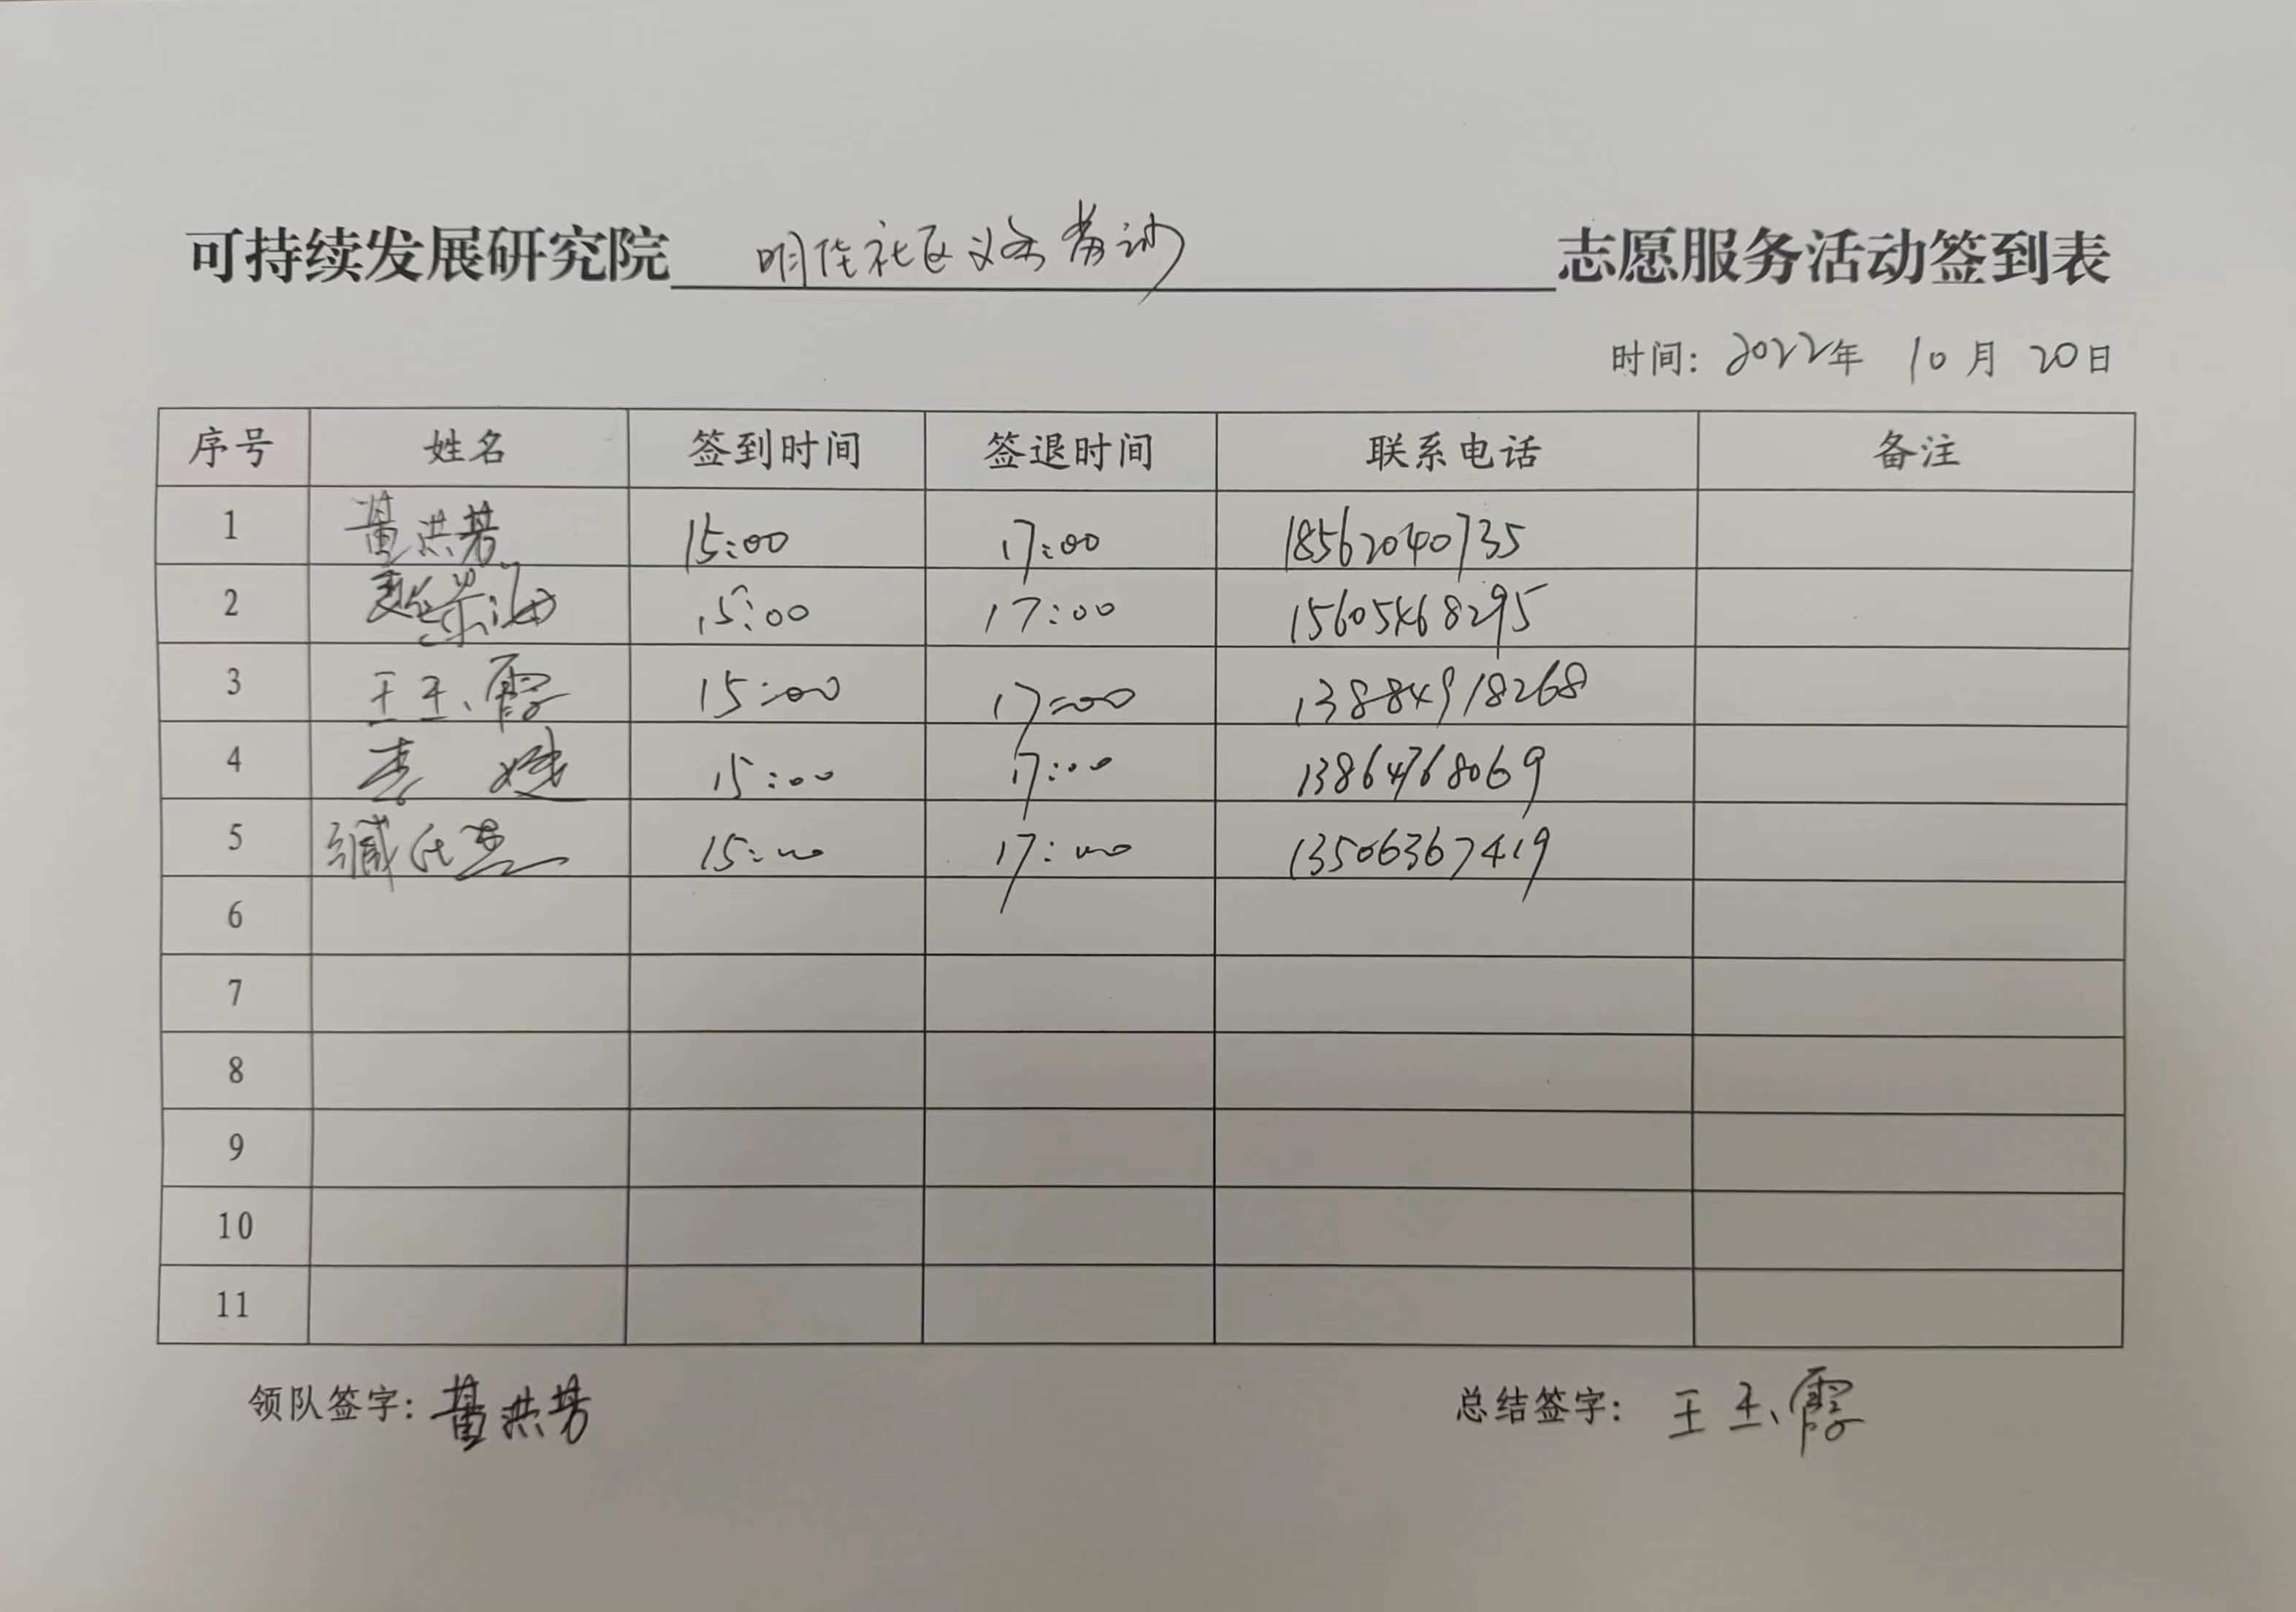 可持续发展研究院 明佳社区 志愿服务活动签到表
时间: 2022年 10月 20日
序号 姓名 签到时间 签退时间 联系电话 备注
1 董洪芳 15:00 17:00 18562040735
2 15:00 17:00 15605468295
3 王玉霞 15:00 17:00 13884918268
4 李 15:00 17:00 13864768069
5 臧 15:00 17:00 13506367419
6
7
8
9
10
11
领队签字: 董洪芳 总结签字: 王玉霞